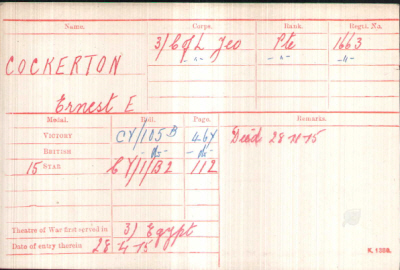 Name. Corps. Rank. Regtl. No.
COCKERTON 3/C of L Yeo Pte 1663
-"- -"- -"-
Ernest E
Medal. Roll. Page. Remarks.
VICTORY CY/105B Died 28-11-15
BRITISH -do- -do-
15 STAR CY/1/B2 112
Theatre of War first served in 3) Egypt
Date of entry therein 28-4-15
K. 1380.